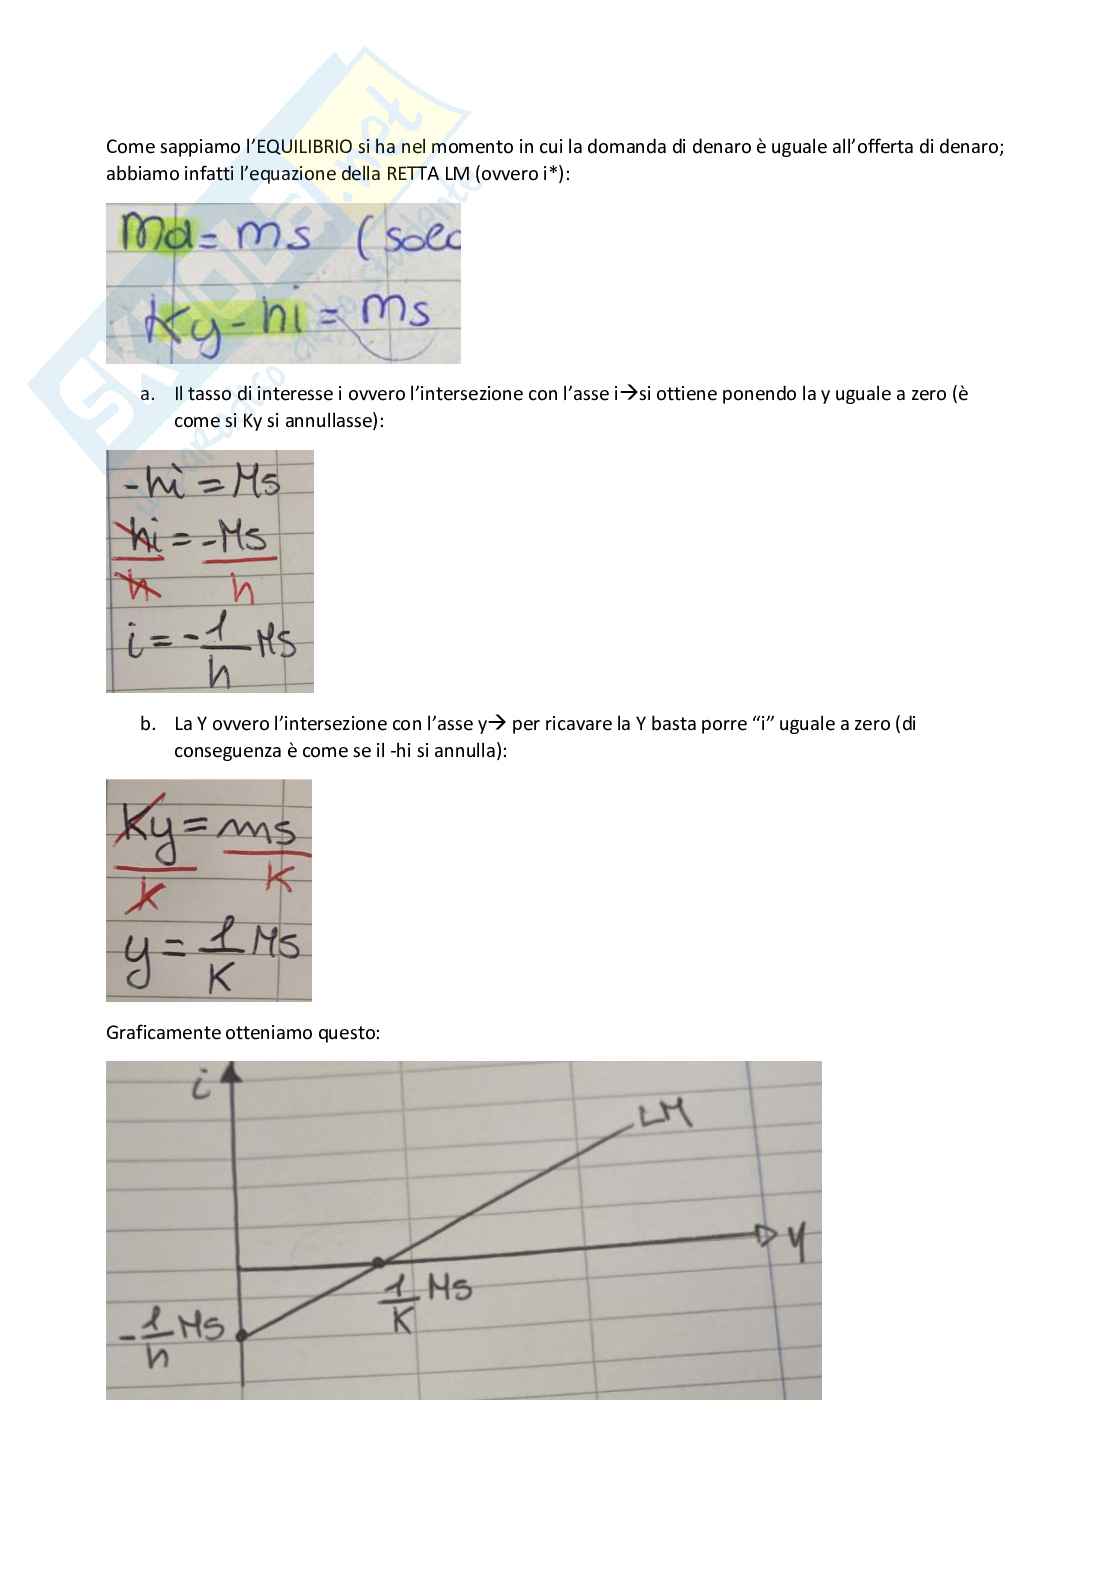 Come sappiamo l’EQUILIBRIO si ha nel momento in cui la domanda di denaro è uguale all’offerta di denaro;
abbiamo infatti l’equazione della RETTA LM (ovvero i*):
Md = ms (
Ky - hi = ms
a. Il tasso di interesse i ovvero l’intersezione con l’asse i→si ottiene ponendo la y uguale a zero (è
come si Ky si annullasse):
-hi = Ms
hi = -Ms
h h
i = - 1/h Ms
b. La Y ovvero l’intersezione con l’asse y→ per ricavare la Y basta porre “i” uguale a zero (di
conseguenza è come se il -hi si annulla):
Ky = ms
K K
y = 1/K Ms
Graficamente otteniamo questo:
i
LM
Y
1/K Ms
- 1/h Ms
SKUOLA.net